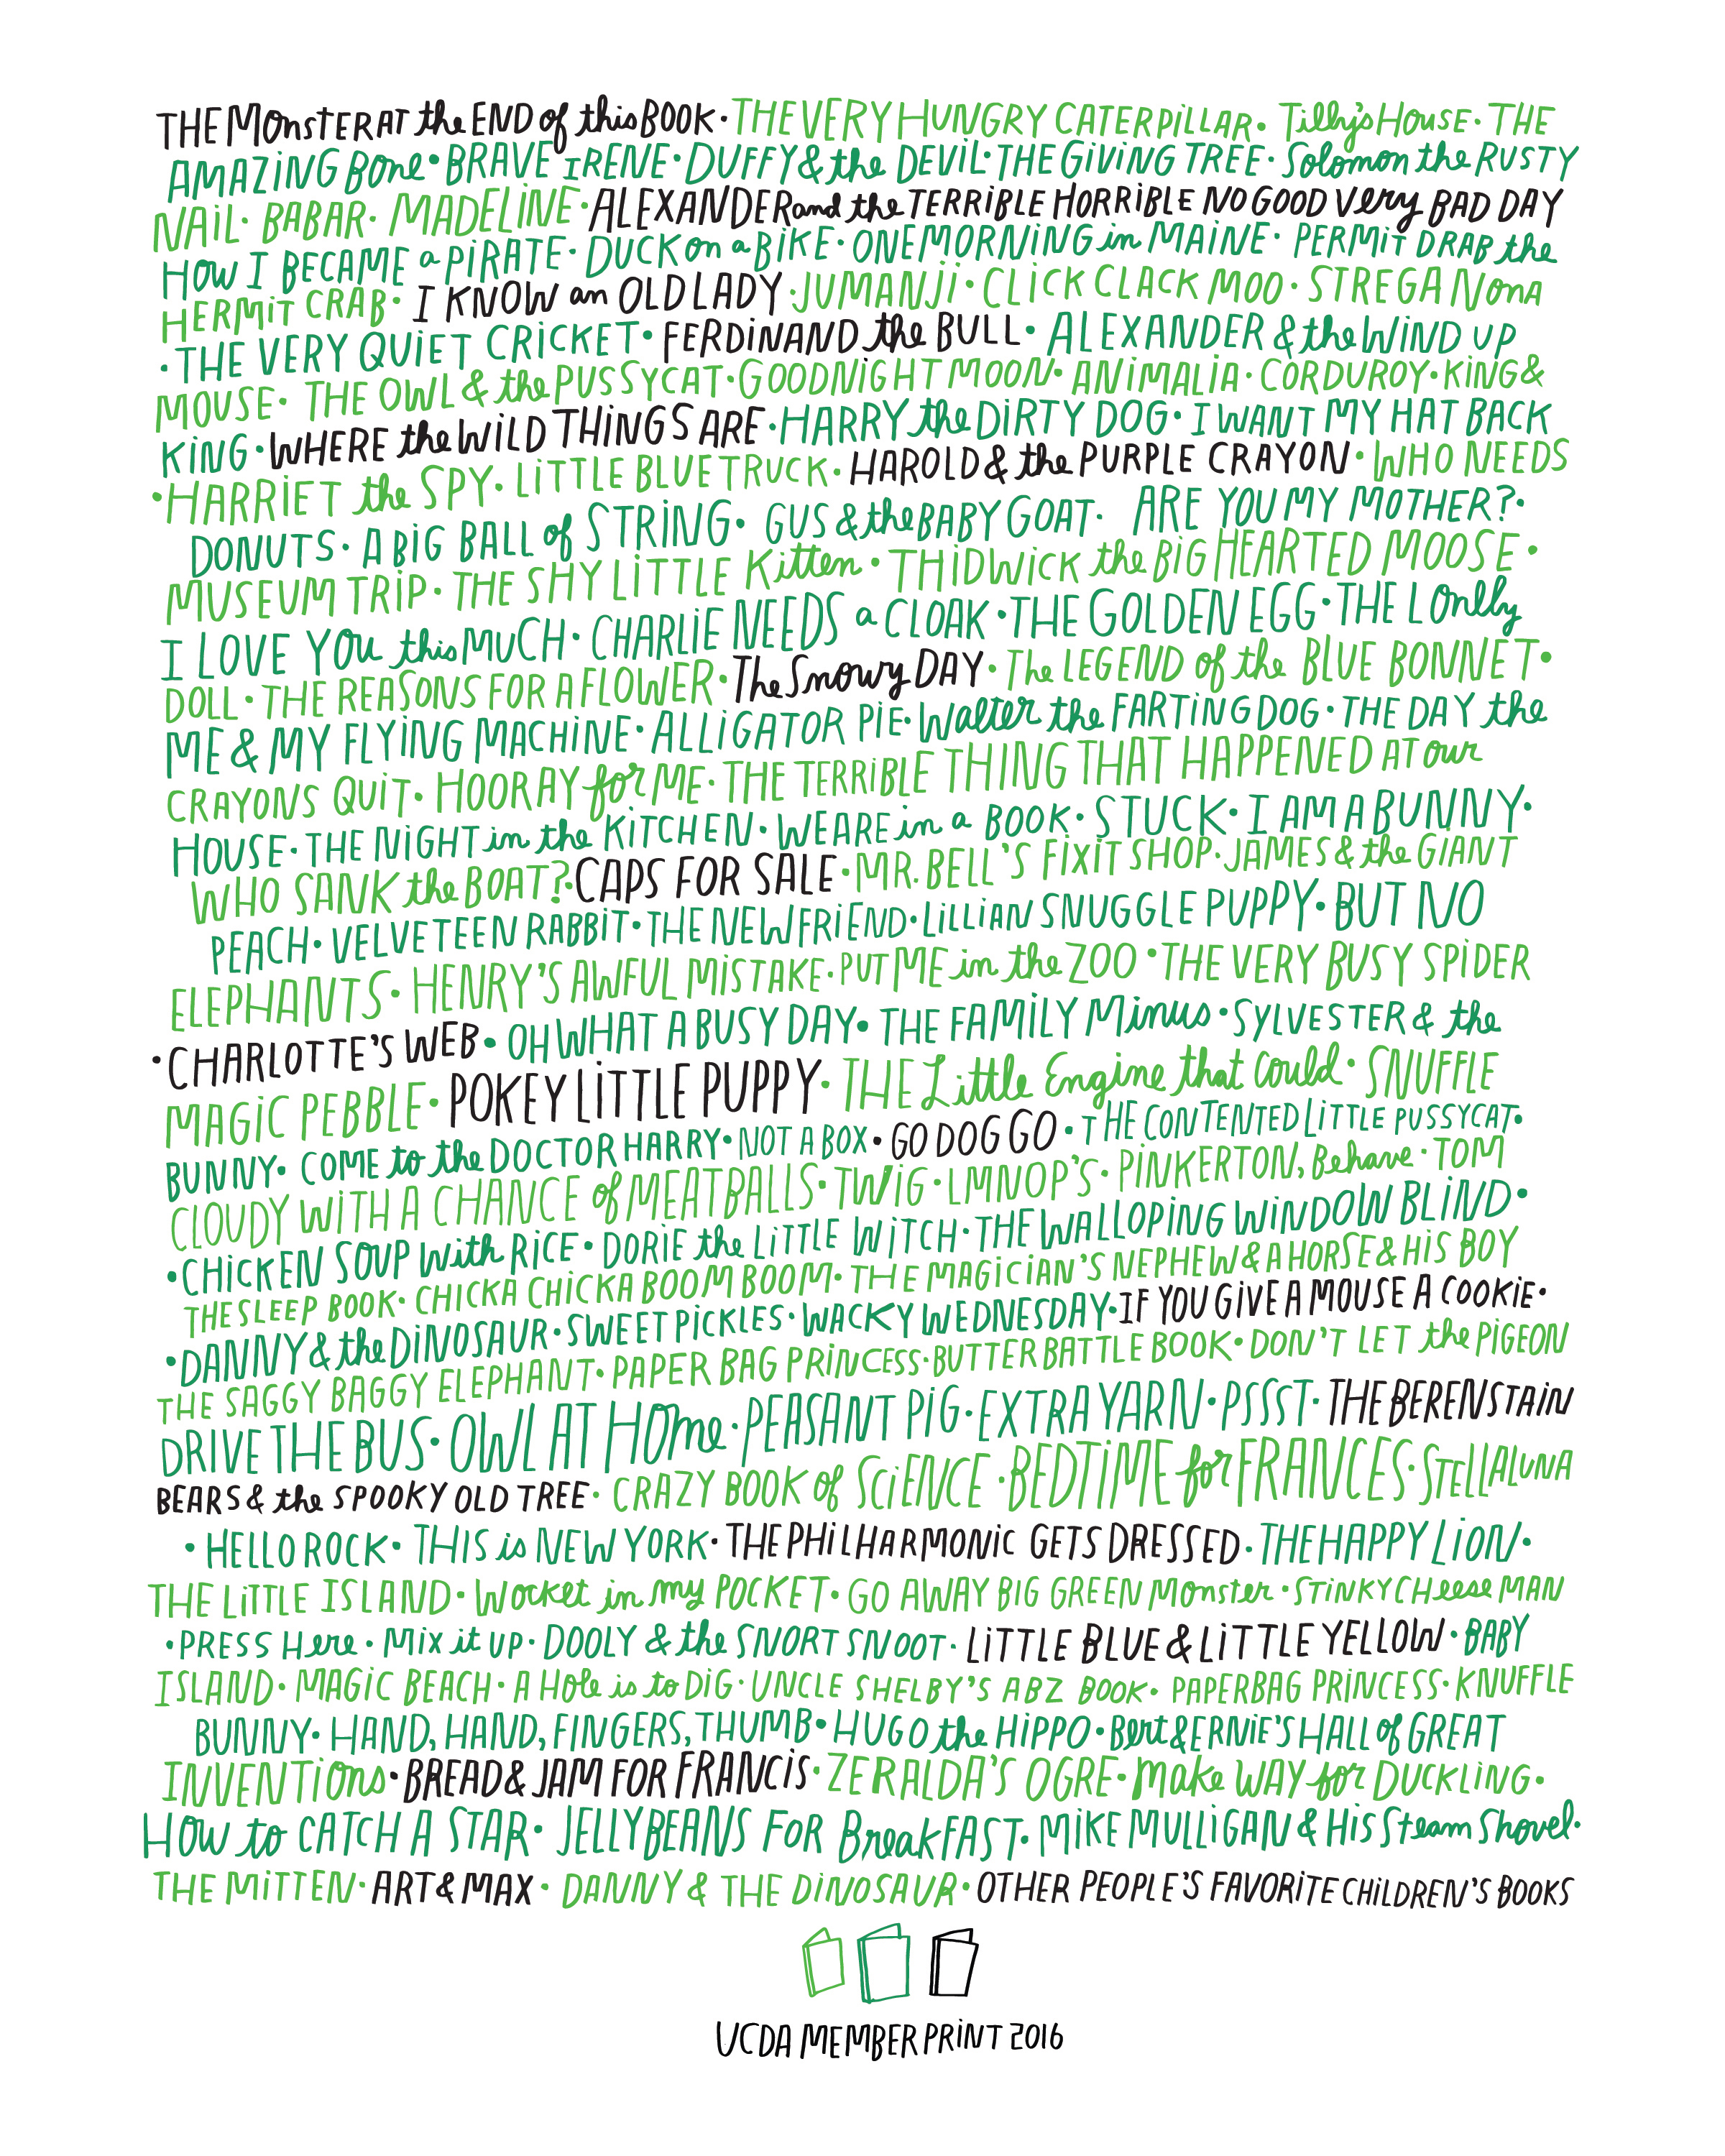 THE MOnSTER AT the END of this BOOK · THE VERY HUNGRY CATERPiLLAR · Tilly's HOUSE · THE
AMAZiNG BOne · BRAVE IRENE · DUFFY & the DEVIL · THE GiViNG TREE · Solomon the RUSTY
NAiL · BABAR · MADELiNE · ALEXANDER and the TERRiBLE HORRiBLE NO GOOD Very BAD DAY
HOW I BECAME a PiRATE · DUCK on a BiKE · ONE MORNiNG in MAiNE · PERMiT DRAB the
HERMiT CRAB · I KNOW an OLD LADY · JUMANJi · CLiCK CLACK MOO · STREGA NOnA
· THE VERY QUiET CRiCKET · FERDiNAND the BULL · ALEXANDER & the WiND UP
MOUSE · THE OWL & the PUSSYCAT · GOODNiGHT MOON · ANiMALiA · CORDUROY · KiNG &
KiNG · WHERE the WiLD THiNGS ARE · HARRY the DiRTY DOG · I WANT MY HAT BACK
· HARRiET the SPY · LiTTLE BLUE TRUCK · HAROLD & the PURPLE CRAYON · WHO NEEDS
DONUTS · A BiG BALL of STRiNG · GUS & the BABY GOAT · ARE YOU MY MOTHER? ·
MUSEUM TRiP · THE SHY LiTTLE Kitten · THiDWiCK the BiG HEARTED MOOSE ·
I LOVE YOu this MUCH · CHARLiE NEEDS a CLOAK · THE GOLDEN EGG · THE LOnelly
DOLL · THE REASONS FOR A FLOWER · The Snowy DAY · The LEGEND of the BLUE BONNET ·
ME & MY FLYiNG MACHiNE · ALLiGATOR PiE · Walter the FARTiNG DOG · THE DAY the
CRAYONS QUiT · HOORAY for ME · THE TERRiBLE THiNG THAT HAPPENED AT our
HOUSE · THE NiGHT in the KiTCHEN · WE ARE in a BOOK · STUCK · I AM A BUNNY ·
WHO SANK the BOAT? · CAPS FOR SALE · MR. BELL'S FiXiT SHOP · JAMES & the GiANT
PEACH · VELVETEEN RABBiT · THE NEW FRiEND · LiLLiAN SNUGGLE PUPPY · BUT NO
ELEPHANTS · HENRY'S AWFUL MiSTAKE · PUT ME in the ZOO · THE VERY BUSY SPiDER
· CHARLOTTE'S WEB · OH WHAT A BUSY DAY · THE FAMiLY Minus · SYLVESTER & the
MAGiC PEBBLE · POKEY LiTTLE PUPPY · THE Little Engine that Could · SNUFFLE
BUNNY · COME to the DOCTOR HARRY · NOT A BOX · GO DOG GO · THE CONTENTED LiTTLE PUSSYCAT ·
CLOUDY WiTH A CHANCE of MEATBALLS · TWiG · LMNOP'S · PiNKERTON, Behave · TOM
· CHiCKEN SOUP With RiCE · DORiE the LiTTLE WiTCH · THE WALLOPiNG WiNDOW BLiND ·
THE SLEEP BOOK · CHiCKA CHiCKA BOOM BOOM · THE MAGiCiAN'S NEPHEW & A HORSE & HiS BOY
· DANNY & the DiNOSAUR · SWEET PiCKLES · WACKY WEDNESDAY · IF YOU GiVE A MOUSE A COOKiE ·
THE SAGGY BAGGY ELEPHANT · PAPER BAG PRiNCESS · BUTTER BATTLE BOOK · DON'T LET the PiGEON
DRiVE THE BUS · OWL AT HOme · PEASANT PiG · EXTRA YARN · PSSST · THE BERENSTAiN
BEARS & the SPOOKY OLD TREE · CRAZY BOOK of SCiENCE · BEDTiME for FRANCES · STELLALUNA
· HELLO ROCK · THiS is NEW YORK · THE PHiLHARMONiC GETS DRESSED · THE HAPPY LiON ·
THE LiTTLE ISLAND · Wocket in my POCKET · GO AWAY BiG GREEN MOnster · STiNKY CHeese MAN
· PRESS Here · Mix it UP · DOOLY & the SNORT SNOOT · LiTTLE BLUE & LiTTLE YELLOW · BABY
ISLAND · MAGiC BEACH · A Hole is to DiG · UNCLE SHELBY'S ABZ BOOK · PAPERBAG PRiNCESS · KNUFFLE
BUNNY · HAND, HAND, FiNGERS, THUMB · HUGO the HiPPO · Bert & ERNiE'S HALL of GREAT
INVENTiOns · BREAD & JAM FOR FRANCiS · ZERALDA'S OGRE · Make WAY for DUCKLiNG ·
HOW to CATCH A STAR · JELLYBEANS FOR BreakFAST · MiKE MULLiGAN & HiS Steam Shovel ·
THE MiTTEN · ART & MAX · DANNY & THE DiNOSAUR · OTHER PEOPLE'S FAVORiTE CHiLDREN'S BOOKS
UCDA MEMBER PRiNT 2016